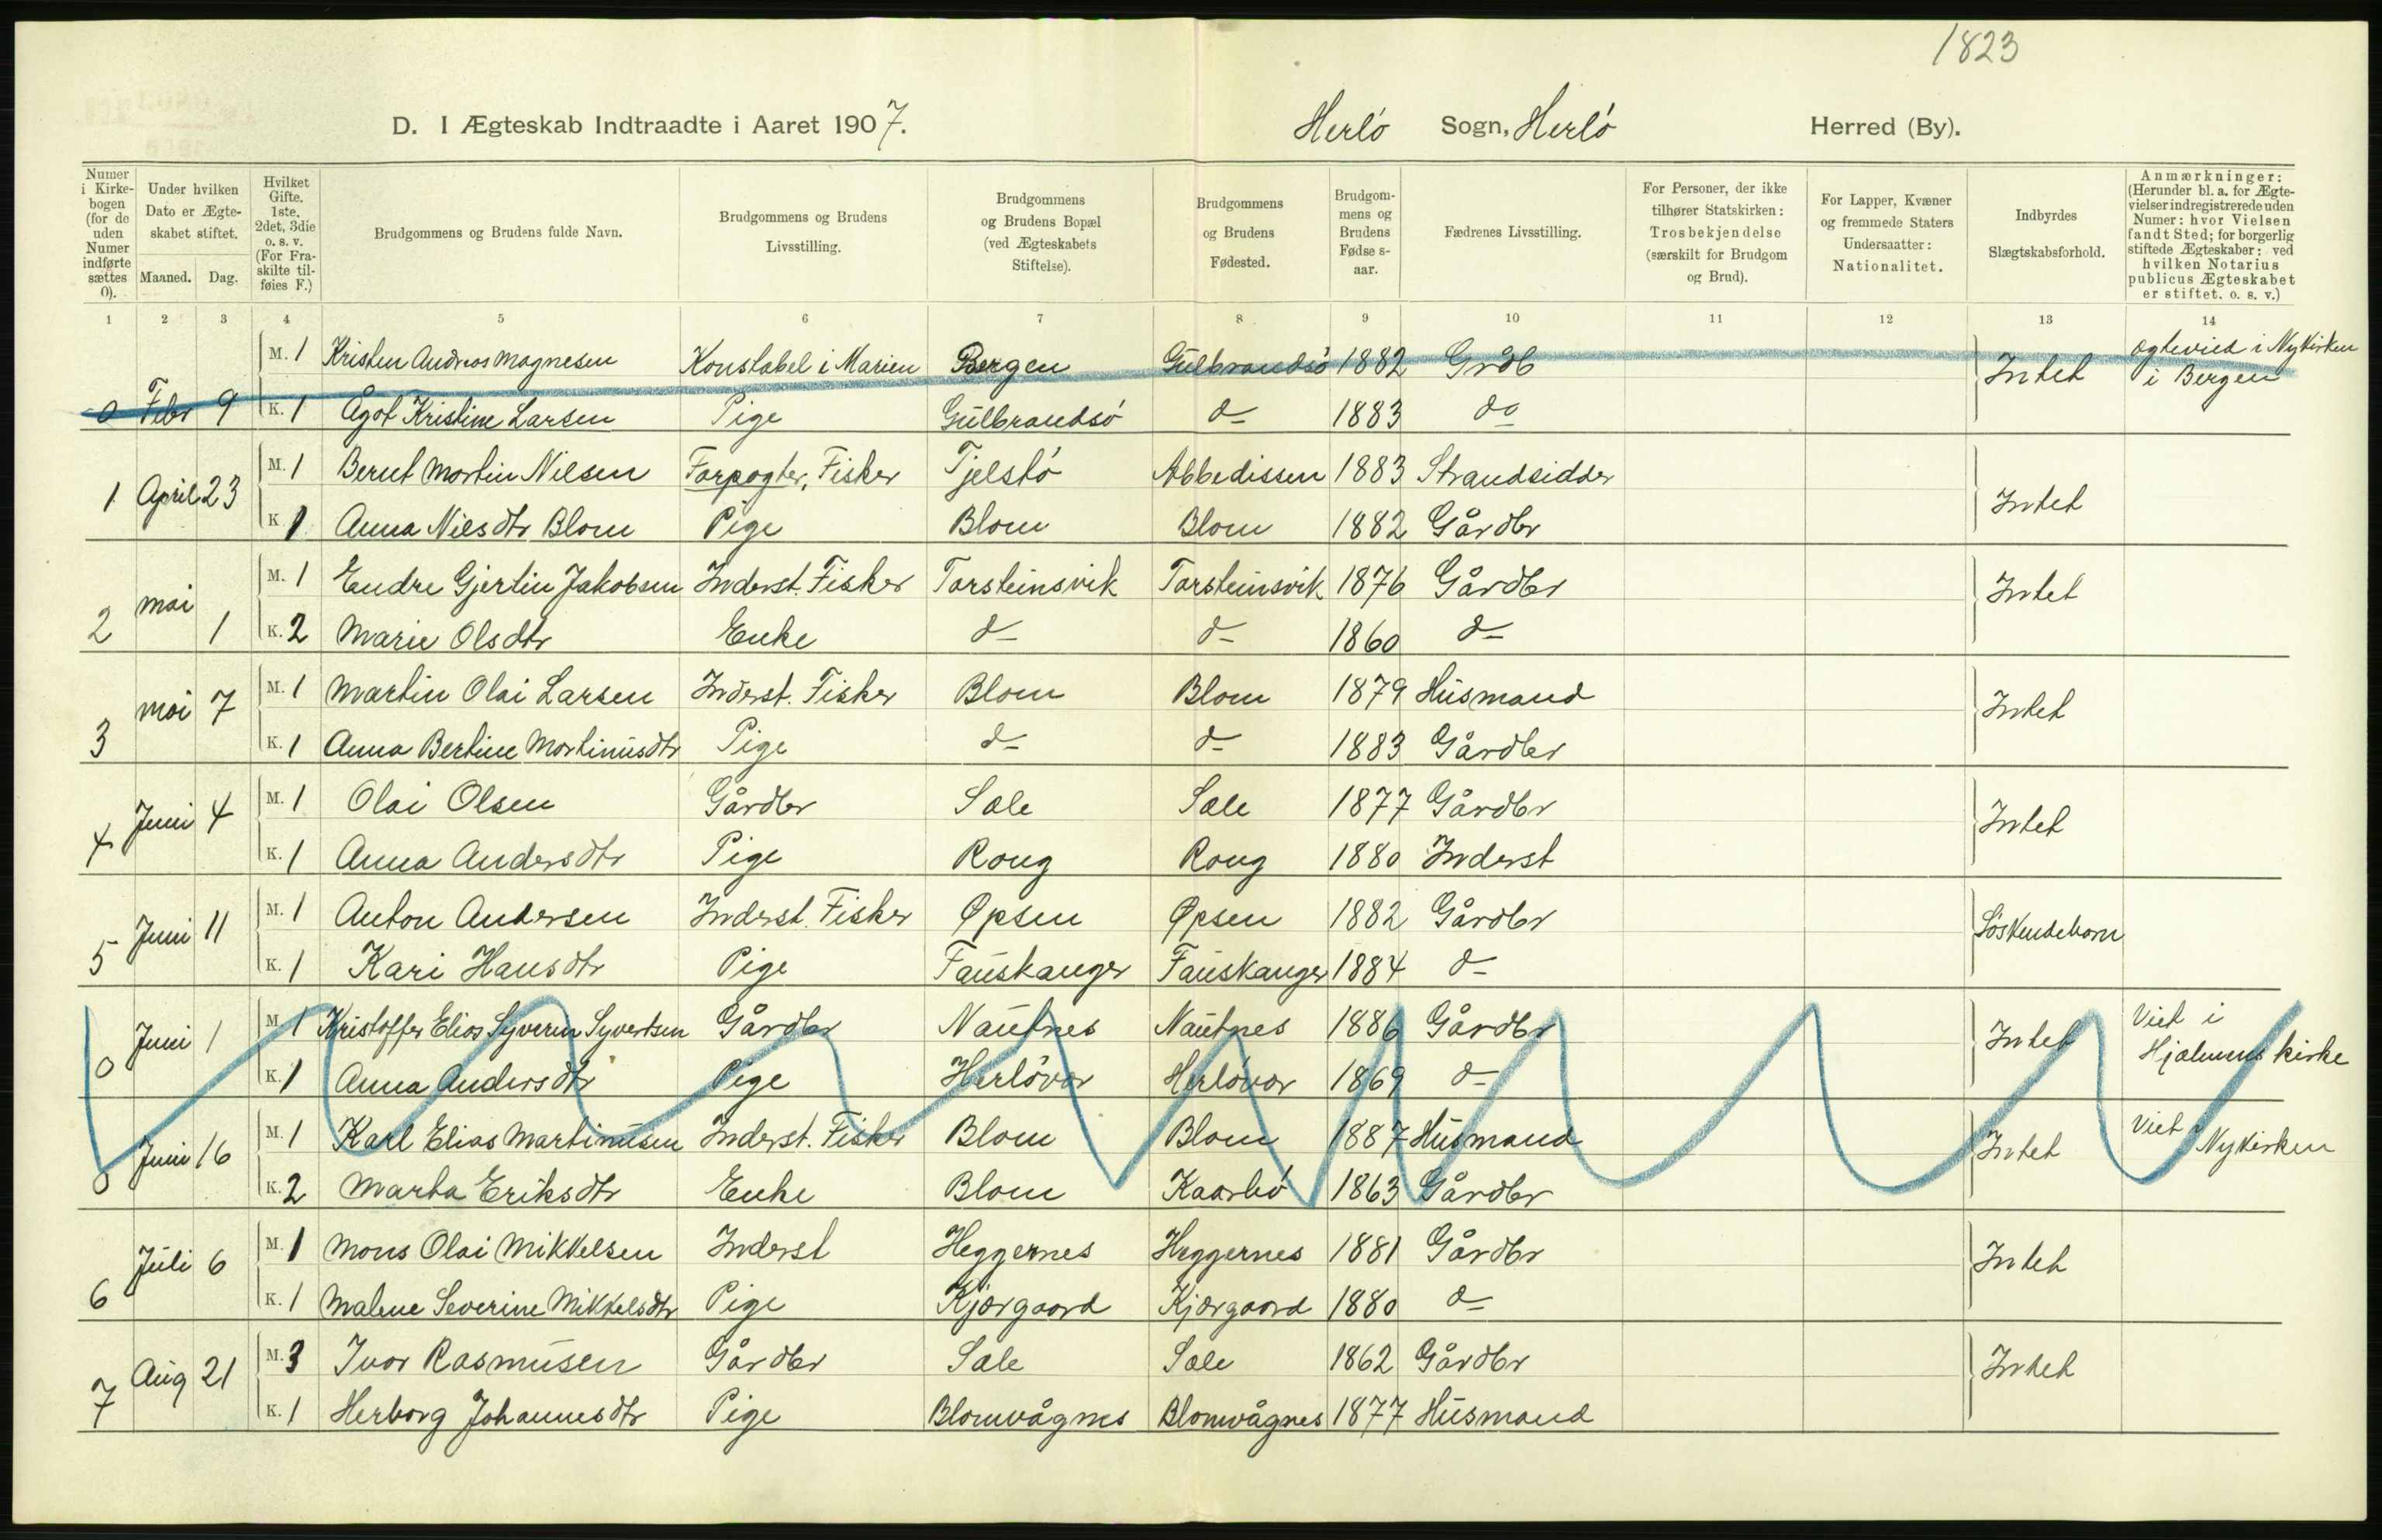 1823
D. I Ægteskab Indtraadte i Aaret 1907. Herlö Sogn, Herlö Herred (By).
Numer i Kirkebogen (for de uden Numer indførte sættes 0). | Under hvilken Dato er Ægteskabet stiftet. Maaned. Dag. | Hvilket Gifte. 1ste, 2det, 3die o. s. v. (For Fraskilte tilføies F.) | Brudgommens og Brudens fulde Navn. | Brudgommens og Brudens Livsstilling. | Brudgommens og Brudens Bopæl (ved Ægteskabets Stiftelse). | Brudgommens og Brudens Fødested. | Brudgommens og Brudens Fødses-aar. | Fædrenes Livsstilling. | For Personer, der ikke tilhører Statskirken: Trosbekjendelse (særskilt for Brudgom og Brud). | For Lapper, Kvæner og fremmede Staters Undersaatter: Nationalitet. | Indbyrdes Slægtskabsforhold. | Anmærkninger: (Herunder bl. a. for Ægtevielser indregistrerede uden Numer: hvor Vielsen fandt Sted; for borgerlig stiftede Ægteskaber: ved hvilken Notarius publicus Ægteskabet er stiftet. o. s. v.)
1 2 3 4 5 6 7 8 9 10 11 12 13 14
M. 1 Kristen Andreas Magnesen Konstabel i Marien Bergen Gulbrandsö 1882 Grdb Intet ægteviet i Nykirken i Bergen
0 Febr 9 K. 1 Ågot Kristine Larsen Pige Gulbrandsö do 1883 do
M. 1 Berut Martin Nilsen Forpagter, Fisker Tjelstö Abbedissen 1883 Strandsidder
1 April 23 K 1 Anna Nilsdtr Blom Pige Blom Blom 1882 Gårdbr Intet
M. 1 Endre Gjertin Jakobsen Inderst. Fisker Torsteinsvik Torsteinsvik 1876 Gårdbr Intet
2 Mai 1 K. 2 Marie Olsdtr Enke do do 1860 do
M. 1 Martin Olai Larsen Inderst. Fisker Blom Blom 1879 Husmand Intet
3 Mai 7 K. 1 Anna Bertine Martinusdtr Pige do do 1883 Gårdbr
M. 1 Olai Olsen Gårdbr Sæle Sæle 1877 Gårdbr Intet
4 Juni 4 K. 1 Anna Andersdtr Pige Rong Rong 1880 Inderst
M. 1 Anton Andersen Inderst. Fisker Øpsen Øpsen 1882 Gårdbr Söskendebarn
5 Juni 11 K. 1 Kari Hansdtr Pige Fauskanger Fauskanger 1884 do
M 1 Kristoffer Elias Syverin Syvertsen Gårdbr Nautnes Nautnes 1886 Gårdbr Intet Viet i Hjelmens kirke
0 Juni 1 K. 1 Anna Andersdtr Pige Herlövær Herlövær 1869 do
M. 1 Karl Elias Martinusen Inderst. Fisker Blom Blom 1887 Husmand Intet Viet i Nykirken
0 Juni 16 K. 2 Marta Eriksdtr Enke Blom Kaarbö 1863 Gårdbr
M. 1 Mons Olai Mikkelsen Inderst Heggernes Heggernes 1881 Gårdbr Intet
6 Juli 6 K. 1 Malene Severine Mikkelsdtr Pige Kjærgaard Kjærgaard 1880 do
M. 3 Ivar Rasmusen Gårdbr Sæle Sæle 1862 Gårdbr Intet
7 Aug 21 K. 1 Herborg Johannesdtr Pige Blomvågnes Blomvågnes 1877 Husmand